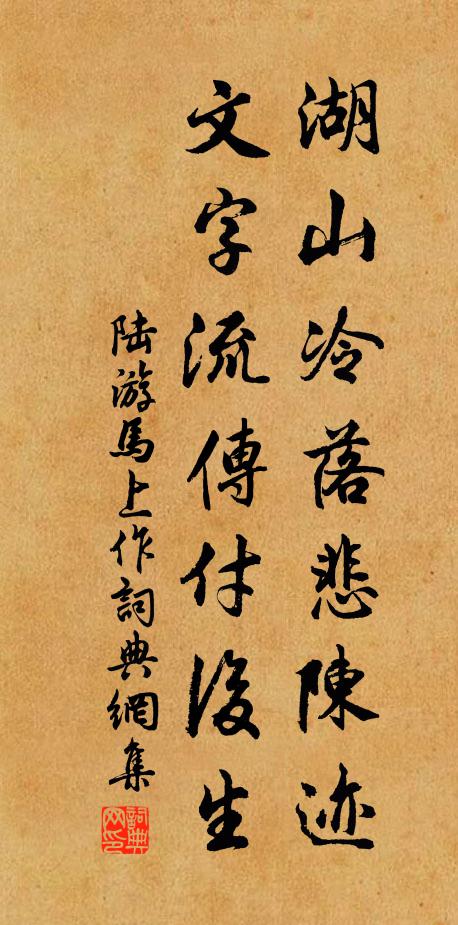 湖山冷落悲陳迹
文字流傳付後生
陆游馬上作詞典網集
詞典网印